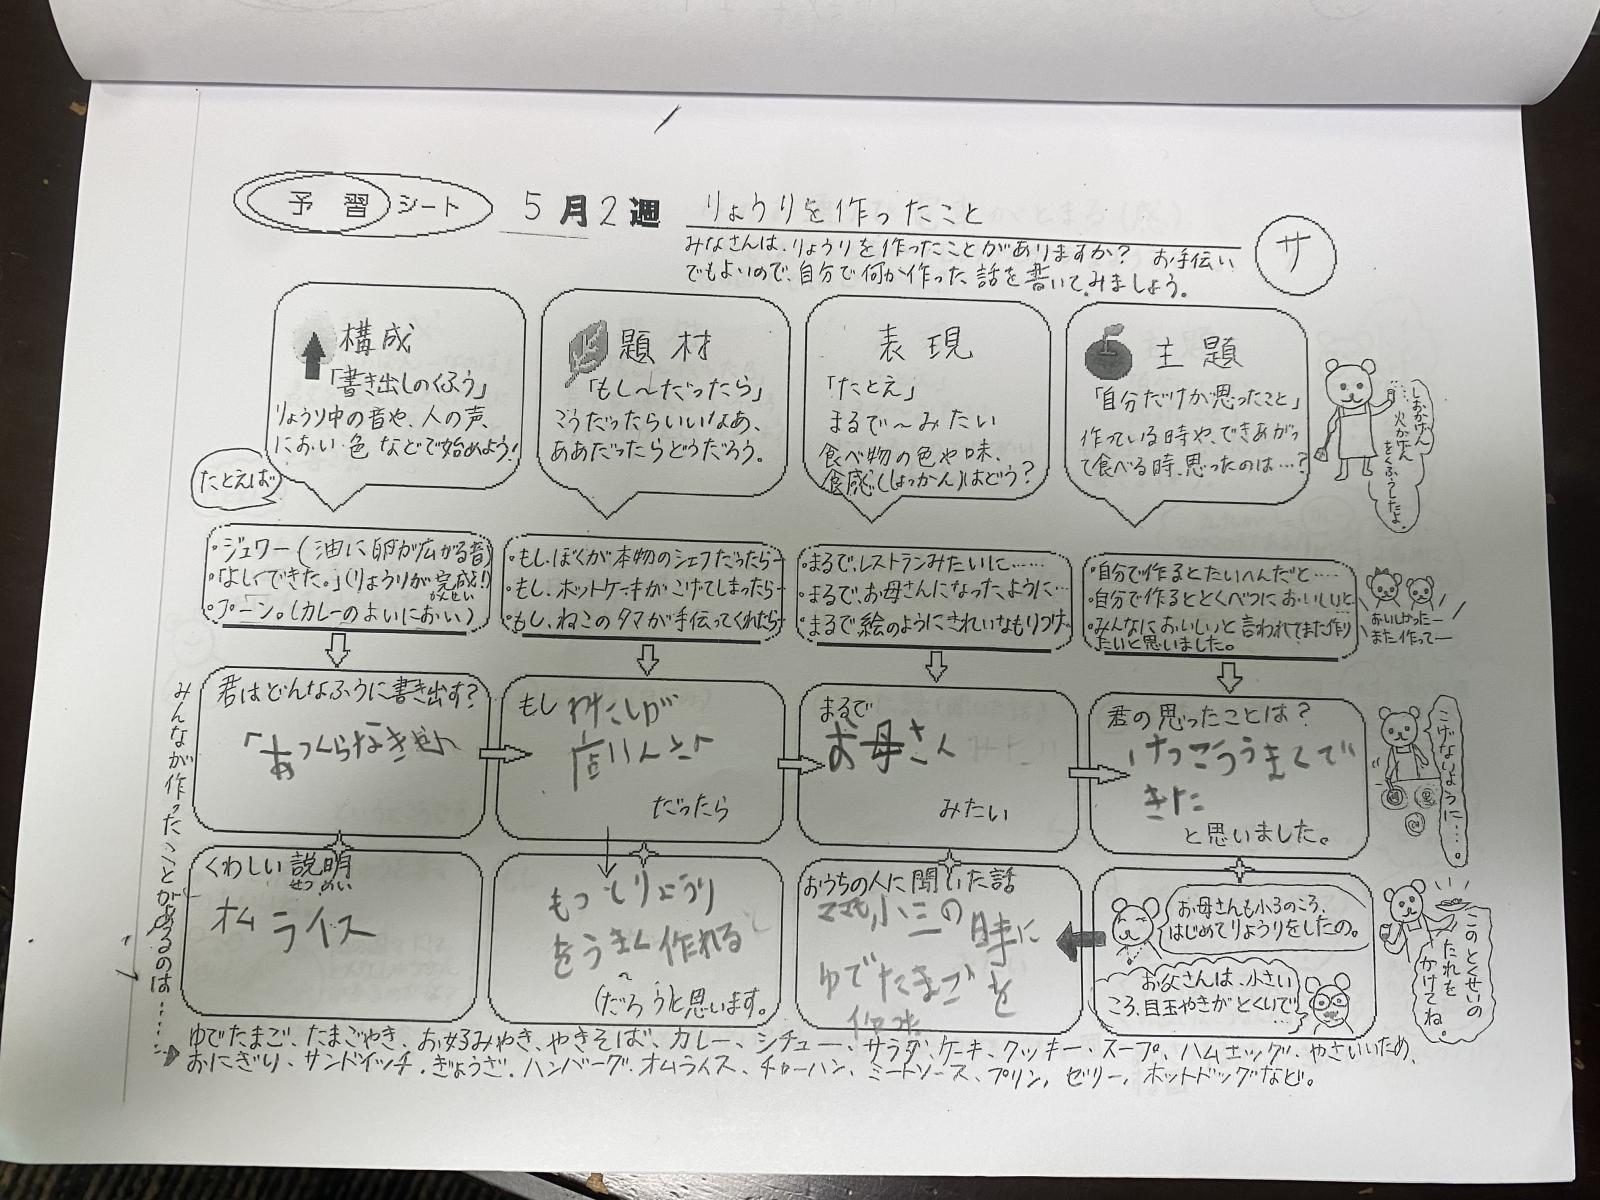 予習シート 5月2週 りょうりを作ったこと
サ
みなさんは、りょうりを作ったことがありますか? お手伝い
でもよいので、自分で何か作った話を書いてみましょう。
構成
「書き出しのくふう」
りょうり中の音や、人の声、
におい・色などで始めよう!
題材
「もし〜だったら」
こうだったらいいなあ、
ああだったらどうだろう。
表現
「たとえ」
まるで〜みたい
食べ物の色や味、
食感(しょっかん)はどう?
主題
「自分だけが思ったこと」
作っている時や、できあがっ
て食べる時、思ったのは…?
しおかげん
火かげん
をくふうしたよ。
たとえば
・ジュワー(油に卵が広がる音)
・「よし、できた。」(りょうりが完成!)
かんせい
・プーン。(カレーのよいにおい)
・もし、ぼくが本物のシェフだったらー
・もし、ホットケーキがこげてしまったらー
・もし、ねこのタマが手伝ってくれたらー
・まるで、レストランみたいに……
・まるで、お母さんになったように…
・まるで絵のようにきれいなもりつけ
・自分で作るとたいへんだと……
・自分で作るととくべつにおいしいと
・みんなにおいしいと言われてまた作り
たいと思いました。
おいしかったー
また作ってー
君はどんなふうに書き出す?
もし わたしが
店いんさん
だったら
まるで
お母さん
みたい
君の思ったことは?
けっこううまくで
きた
と思いました。
こげないように…。
くわしい説明
せつめい
オムライス
もっとりょうり
をうまく作れる
(だろう)と思います。
おうちの人に聞いた話
ママも小三の時に
ゆでたまごを
お母さんも小3のころ、
はじめてりょうりをしたの。
お父さんは、小さい
ころ、目玉やきがとくいで
…
このとくせいの
たれを
かけてね。
みんなが作ったことがあるのは……
ゆでたまご、たまごやき、お好みやき、やきそば、カレー、シチュー、サラダ、ケーキ、クッキー、スープ、ハムエッグ、やさいいため、
おにぎり、サンドイッチ、ぎょうざ、ハンバーグ、オムライス、チャーハン、ミートソース、プリン、ゼリー、ホットドッグなど。